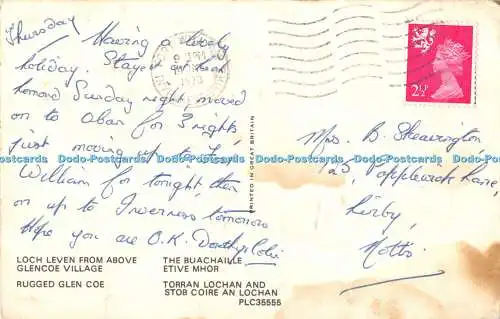 Thursday
Having a lovely
holiday. Stayed at Loch
Lomond Sunday night, moved
on to Oban for 3 nights
just moving up to Ft.
William for tonight, then
on up to Inverness tomorrow
Hope you are O.K. Dorothy & Colin
LOCH LEVEN FROM ABOVE
GLENCOE VILLAGE
RUGGED GLEN COE
THE BUACHAILLE
ETIVE MHOR
TORRAN LOCHAN AND
STOB COIRE AN LOCHAN
PLC35555
PRINTED IN GREAT BRITAIN
2½
Mrs. B. Sheavington,
Applewick Lane,
Linby,
Notts.
Dodo-Postcards Dodo-Postcards Dodo-Postcards Dodo-Postcards Dodo-Postcards